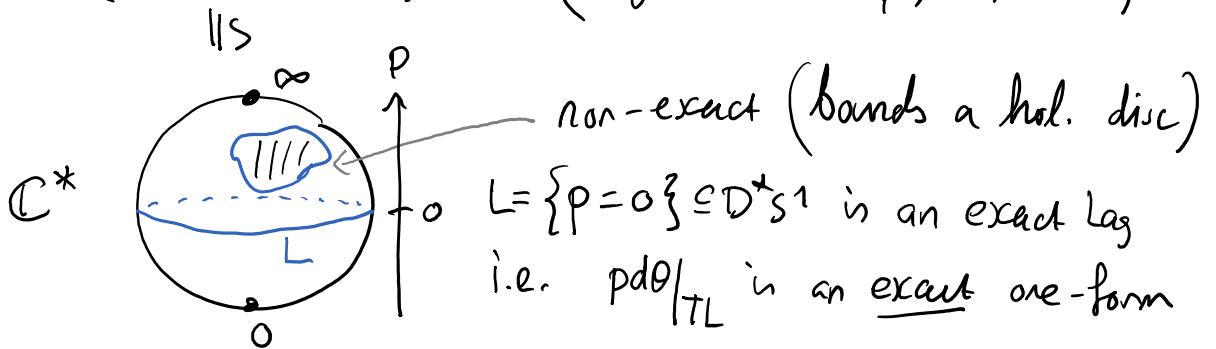 ∥S
∞
P
non-exact (bounds a hol. disc)
ℂ*
0
L = {p = 0} ⊆ D*S¹ is an exact Lag
L
i.e. pdθ|_TL is an exact one-form
0